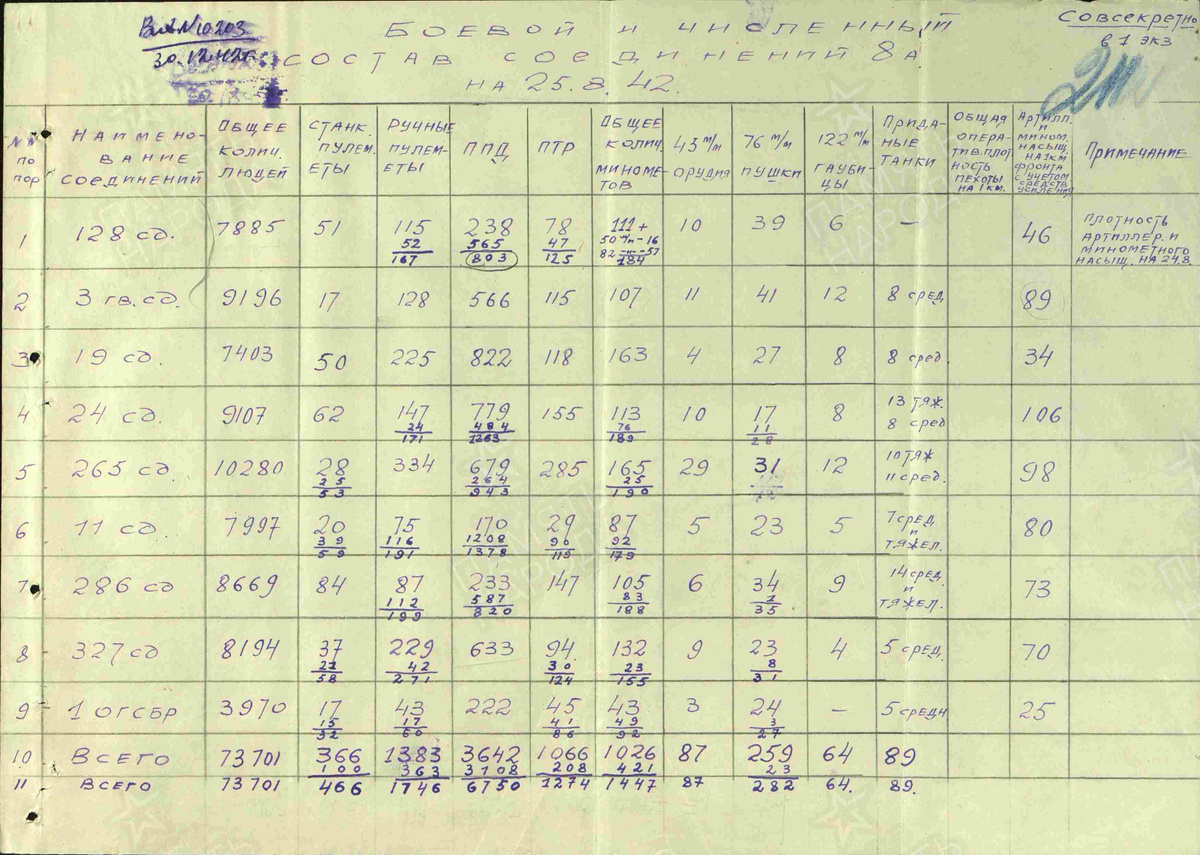 Вх. №10203
30.12.42г
Совсекретно
в 1 экз
БОЕВОЙ И ЧИСЛЕННЫЙ
СОСТАВ СОЕДИНЕНИЙ 8А
НА 25.8.42.
№№ по пор | НАИМЕНО-ВАНИЕ СОЕДИНЕНИЙ | ОБЩЕЕ КОЛИЧ. ЛЮДЕЙ | СТАНК. ПУЛЕМ-ЕТЫ | РУЧНЫЕ ПУЛЕМ-ЕТЫ | ППД | ПТР | ОБЩЕЕ КОЛИЧ. МИНОМЕ-ТОВ | 45 м/м ОРУДИЯ | 76 м/м ПУШКИ | 122 м/м ГАУБИ-ЦЫ | ПРИДА-НЫЕ ТАНКИ | ОБЩАЯ ОПЕРА-ТИВ. ПЛОТ-НОСТЬ ПЕХОТЫ НА 1 КМ. | АРТИЛЛ. И МИНОМ. НАСЫЩ. НА 1КМ ФРОНТА С УЧЕТОМ СРЕДСТВ УСИЛЕНИЯ | Примечание
1 | 128 сд. | 7885 | 51 | 115 52 167 | 238 565 803 | 78 47 125 | 111+ 50 м/м-16 82 -"- -57 184 | 10 | 39 | 6 | – | 46 | ПЛОТНОСТЬ АРТИЛЛЕР. И МИНОМЕТНОГО НАСЫЩ. НА 24.8.
2 | 3 гв. сд. | 9196 | 17 | 128 | 566 | 115 | 107 | 11 | 41 | 12 | 8 сред. | 89
3 | 19 сд | 7403 | 50 | 225 | 822 | 118 | 163 | 4 | 27 | 8 | 8 сред. | 34
4 | 24 сд | 9107 | 62 | 147 24 171 | 779 484 1263 | 155 | 113 76 189 | 10 | 17 11 28 | 8 | 13 тяж. 8 сред | 106
5 | 265 сд | 10280 | 28 25 53 | 334 | 679 264 943 | 285 | 165 25 190 | 29 | 31 | 12 | 10 тяж 11 сред. | 98
6 | 11 сд | 7997 | 20 39 59 | 75 116 191 | 170 1208 1378 | 29 90 119 | 87 92 179 | 5 | 23 | 5 | 7 сред. и тяжел. | 80
7 | 286 сд | 8669 | 84 | 87 112 199 | 233 587 820 | 147 | 105 83 188 | 6 | 34 1 35 | 9 | 14 сред. и тяжел. | 73
8 | 327 сд | 8194 | 37 21 58 | 229 42 271 | 633 | 94 30 124 | 132 23 155 | 9 | 23 8 31 | 4 | 5 сред. | 70
9 | 1 ОГСБР | 3970 | 17 15 32 | 43 17 60 | 222 | 45 41 86 | 43 49 92 | 3 | 24 3 27 | – | 5 средн | 25
10 | ВСЕГО | 73701 | 366 100 | 1383 363 | 3642 3108 | 1066 208 | 1026 421 | 87 | 259 23 | 64 | 89
11 | ВСЕГО | 73701 | 466 | 1746 | 6750 | 1274 | 1447 | 87 | 282 | 64. | 89.